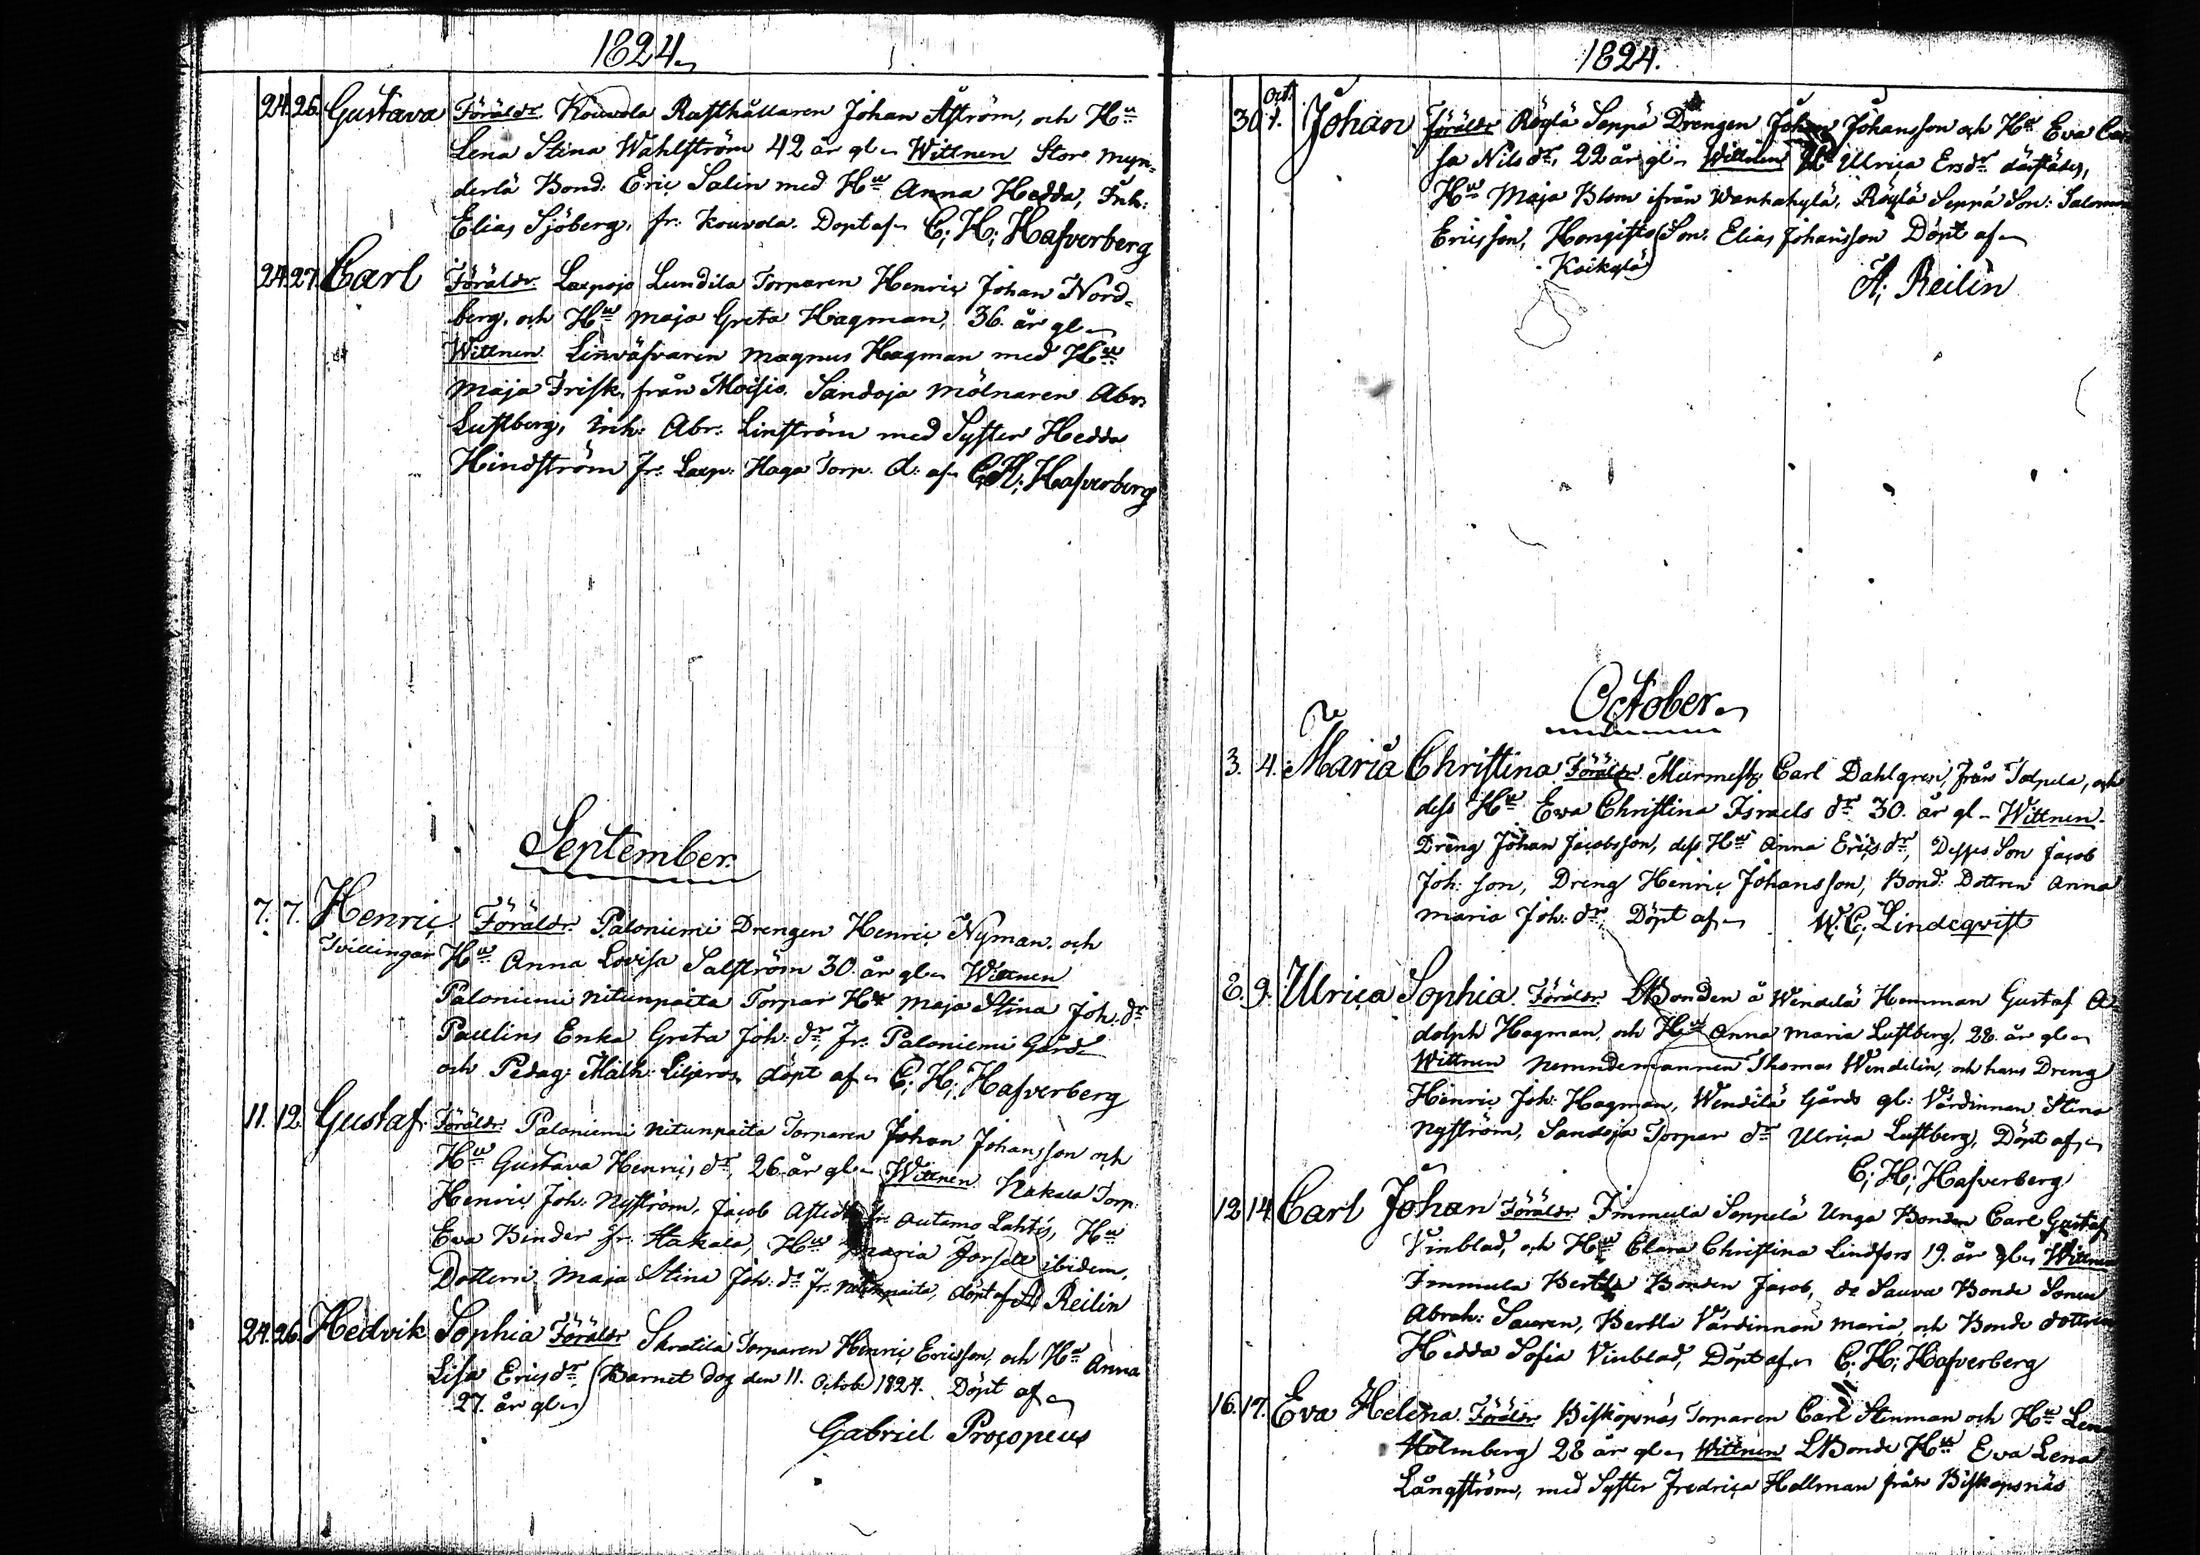 1824
24. 26. Gustava Föräldr. Kouvola Rusthållaren Johan Åström, och Hu
Lena Stina Wahlström 42 år gl. Wittnen Stor Myn-
derlä Bond. Eric Salin med Hu Anna Hedda, Inh:
Elias Sjöberg, fr. Kouvola. Döpt af C: H: Hafverberg
24. 27. Carl Föräldr. Larpojo Lundila Torparen Henric Johan Nord-
berg, och Hu Maja Greta Hagman, 36. år gl.
Wittnen Linväfvaren Magnus Hagman med Hu
Maja Frisk, från Moisio. Sandoja Mölnaren Abr.
Luftberg, Inh: Abr: Linström med Syster Hedda
Hindström fr. Larp. Haga Torp. d: af C: H: Hafverberg
September.
7. 7. Henric Föräldr. Paloniemi Drengen Henric Nyman och
Tvillingar Hu Anna Lovisa Salström 30. år gl. Wittnen
Paloniemi Nitunpaita Torpar Hu Maja Stina Joh: dr
Paulins Enka Greta Joh: dr, fr. Paloniemi Gård
och Pedag: Math: Liljeros, döpt af C: H: Hafverberg
11. 12. Gustaf Föräldr. Paloniemi Nitunpaita Torparen Johan Johansson och
Hu Gustava Henrics dr, 26. år gl. Wittnen Hakala Torp.
Henric Joh: Nyström, Jacob fr. Outamo Lahtis, Hu
Eva Binder fr. Hakala, Hu Maria Forsell ibidem,
Dottern Maja Stina Joh: dr fr. Nitunpaita, döpt af A Reilin
24. 26. Hedvik Sophia Föräldr. Skratila Torparen Henric Ericsson, och Hu Anna
Lisa Erics dr (Barnet dog den 11. Octob 1824. Döpt af
27. år gl.)
Gabriel Procopeus
1824.
30 Oct. 1. Johan Föräldr. Röylä Seppä Drengen Johan Johansson och Hu Eva Cai
sa Nils dr, 22 år gl. Wittnen Hu Ulrica Ers dr därstädes,
Hu Maja Blom ifrån Wanhakylä, Röylä Seppä Son: Salomon
Ericsson, Hongisto Son: Elias Johansson Döpt af
Koikylä
A: Reilin
October
3. 4. Maria Christina Föräldr. Murmest: Carl Dahlgren, från Tolpela, och
dess Hu Eva Christina Israels dr 30. år gl. Wittnen.
Dreng Johan Jacobsson, dess Hu Anna Erics dr, Desses Son Jacob
Joh: son, Dreng Henric Johansson, Bond. Dottren Anna
Maria Joh: dr, Döpt af W: C: Lindeqvist
8. 9. Ulrica Sophia. Föräldr. LBonden å Wendelä Hemman Gustaf A-
dolph Hagman, och Hu Anna Maria Luftberg, 28. år gl.
Wittnen Nemndemannen Thomas Wendelin, och hans Dreng
Henric Joh: Hagman, Wendilä Gårds gl: Värdinnan Stina
Nyström, Sandoja Torpar dr Ulrica Luftberg, Döpt af
C: H: Hafverberg
12. 14. Carl Johan Föräldr. Immula Seppelä Unga Bonden Carl Gustaf
Vinblad, och Hu Clara Christina Lindfors 19. år gl. Wittnen
Immula Bertila Bonden Jacob, do Sauva Bonde Sonen
Abrah: Sauren, Bertla Värdinnan Maria, och Bonde dottren
Hedda Sofia Vinblad, Döpt af C: H: Hafverberg
16. 17. Eva Helena Föräldr. Biskopsnäs Torparen Carl Stenman och Hu Lena
Holmberg 28 år gl. Wittnen LBonde Hu Eva Lena
Långström, med Syster Fredrica Hollman från Biskopsnäs